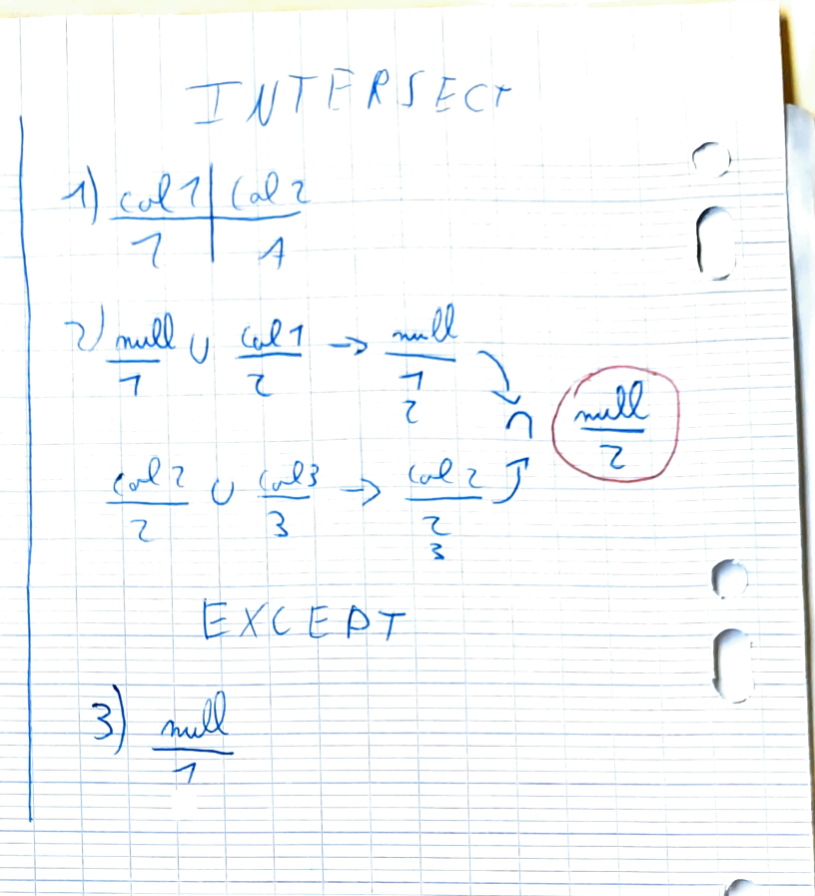 INTERSECT
1) col1 | col2
1 | 1
2) null ∪ col1 → null
1 2 1
2 ∩ null
2
col2 ∪ col3 → col2
2 3 2
3
EXCEPT
3) null
1